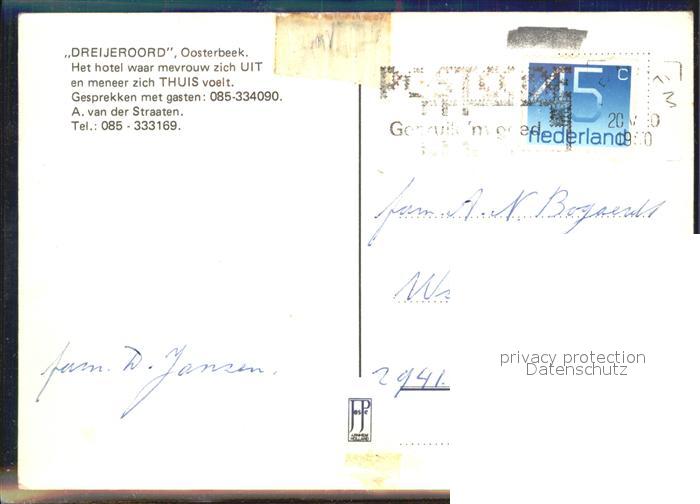 „DREIJEROORD”, Oosterbeek.
Het hotel waar mevrouw zich UIT
en meneer zich THUIS voelt.
Gesprekken met gasten: 085-334090.
A. van der Straaten.
Tel.: 085 - 333169.
POSTCODE
Gebruik 'm goed
45 c
nederland
1980
fam. A. N. Bogaerdt
2941
fam. D. Jansen.
ARNHEM
HOLLAND
privacy protection
Datenschutz